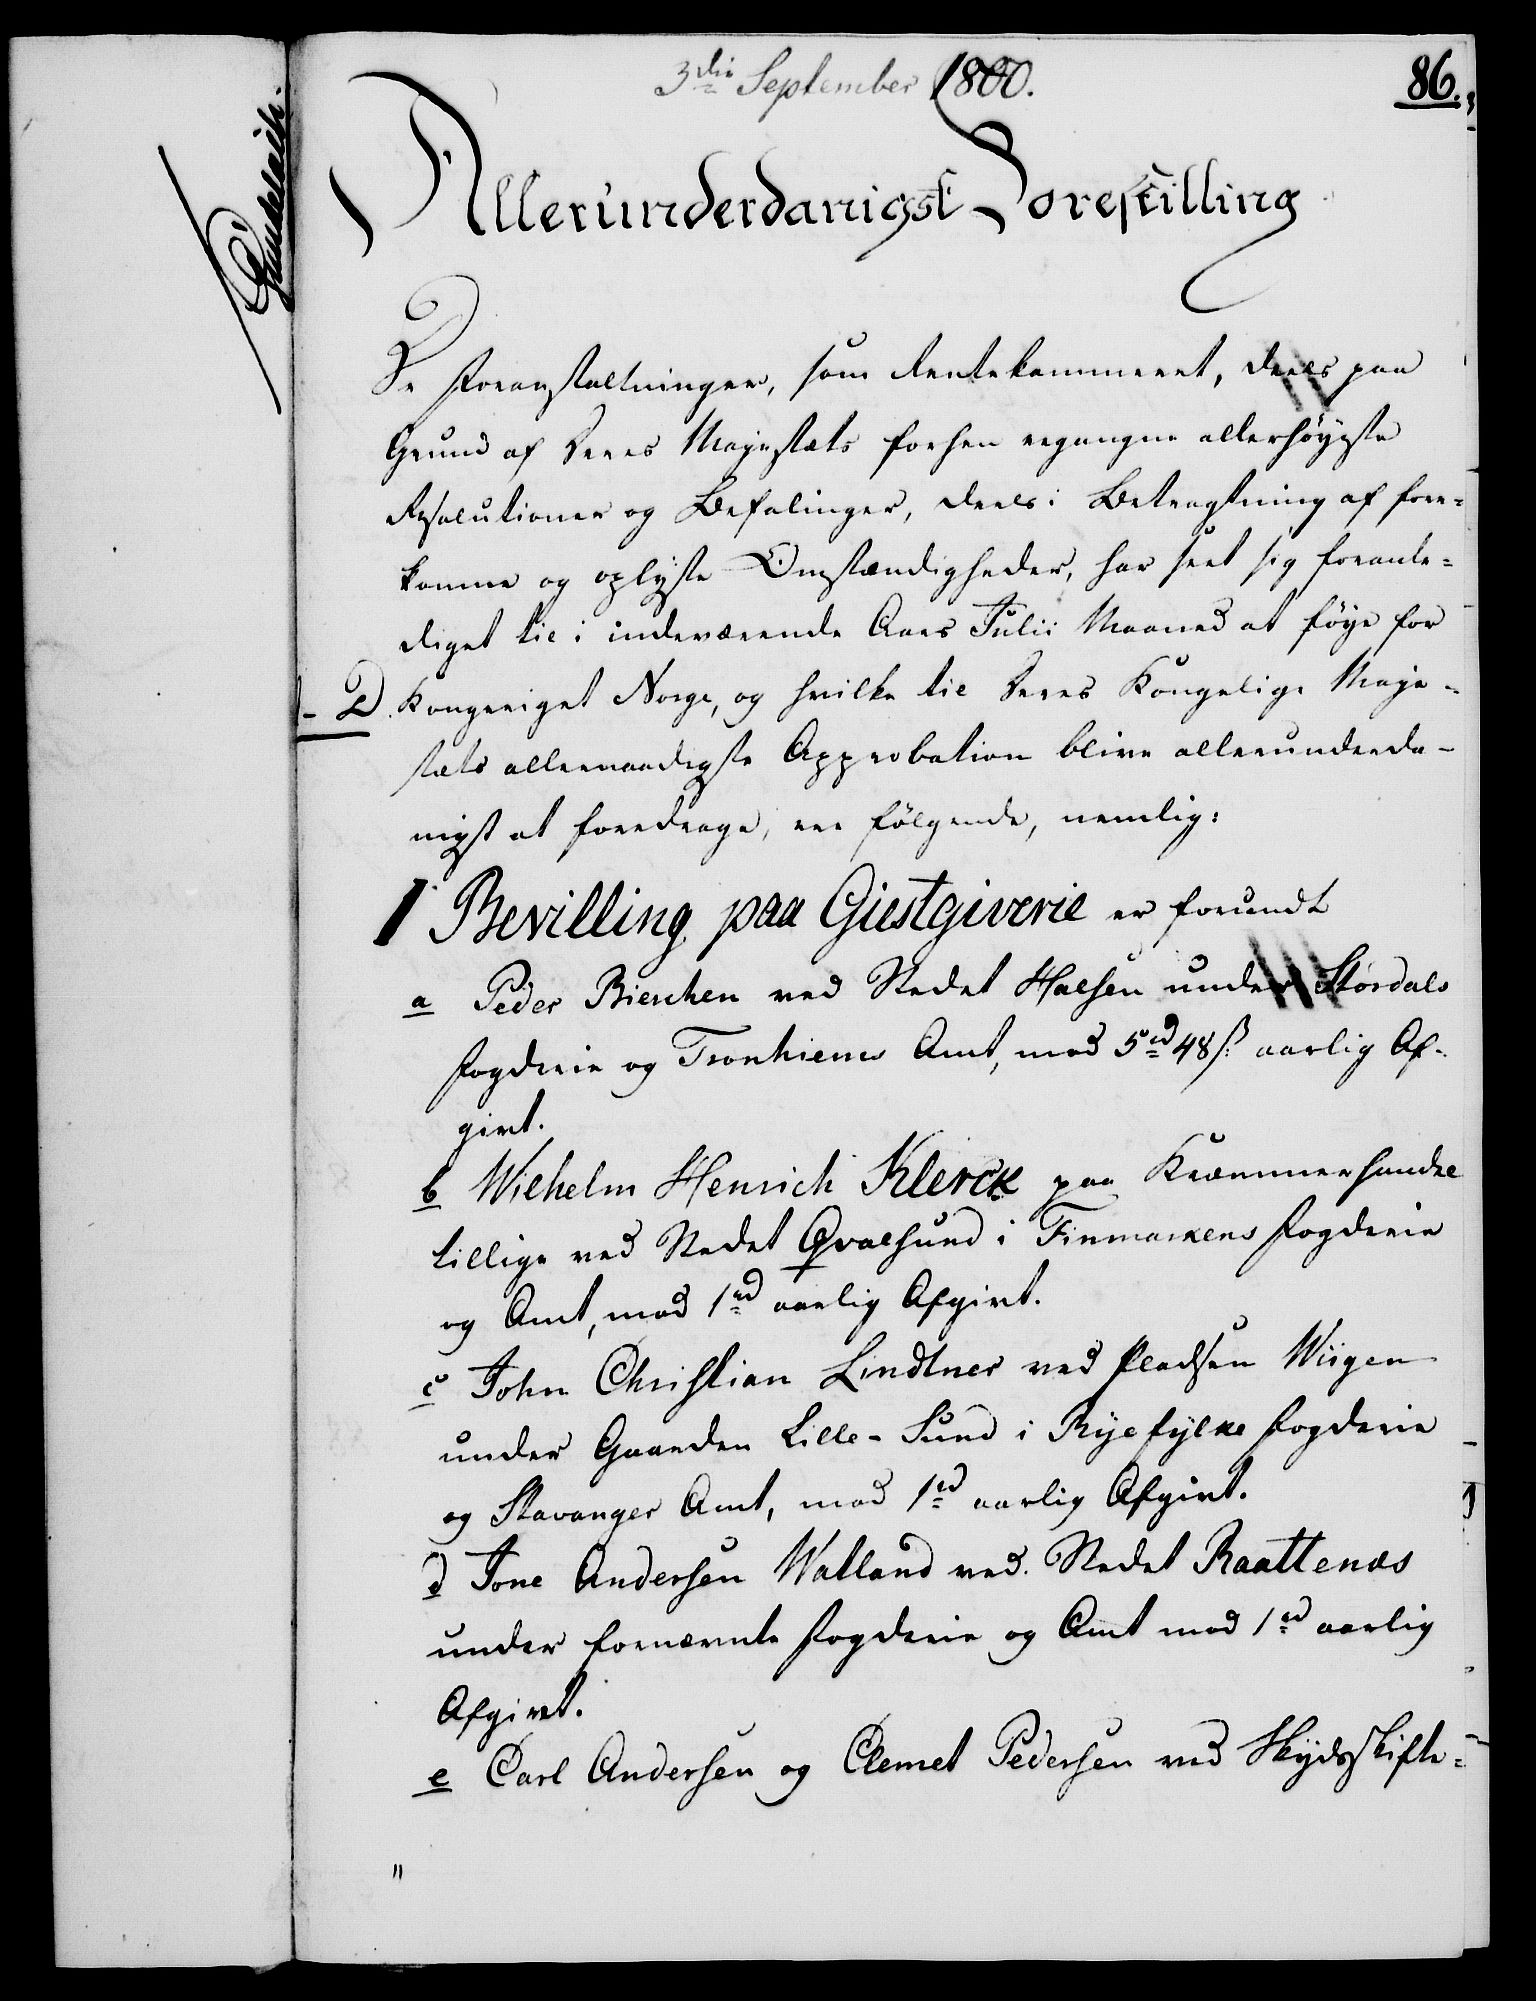 3die September 1800.
86.
Allerunderdanigst Forestilling
De Foranstaltninger, som Rentekammeret, deels paa
Grund af Deres Majestæts forhen ergangne allerhøyeste
Resolutioner og Befalinger, deels i Betragtning af fore-
komne og oplyste Omstændigheder, har seet sig foranle-
diget til i indeværende Aars Julii Maaned at føye for
Kongeriget Norge, og hvilke til Deres Kongelige Maje-
stæts allernaadigste Approbation blive allerunderda-
nigst at foredrage, ere følgende, nemlig:
1 Bevilling paa Giestgiverie er forundt
a Peder Bierchen ved Stedet Halsen under Størdals
Fogderie og Tronhiems Amt, mod 5rd 48ß aarlig Af-
givt.
b Wilhelm Henrich Klerck paa Kræmmerhandel
tillige ved Stedet Qvalsund i Finmarkens Fogderie
og Amt, mod 1rd aarlig Afgivt.
c John Christian Lindtner ved Pladsen Wiigen
under Gaarden Lille-Sund i Ryefylke Fogderie
og Stavanger Amt, mod 1rd aarlig Afgivt.
d Jone Andersen Watland ved Stedet Raattenæs
under fornævnte Fogderie og Amt mod 1rd aarlig
Afgivt.
e Carl Andersen og Clemet Pedersen ved Skydsskifte-
"